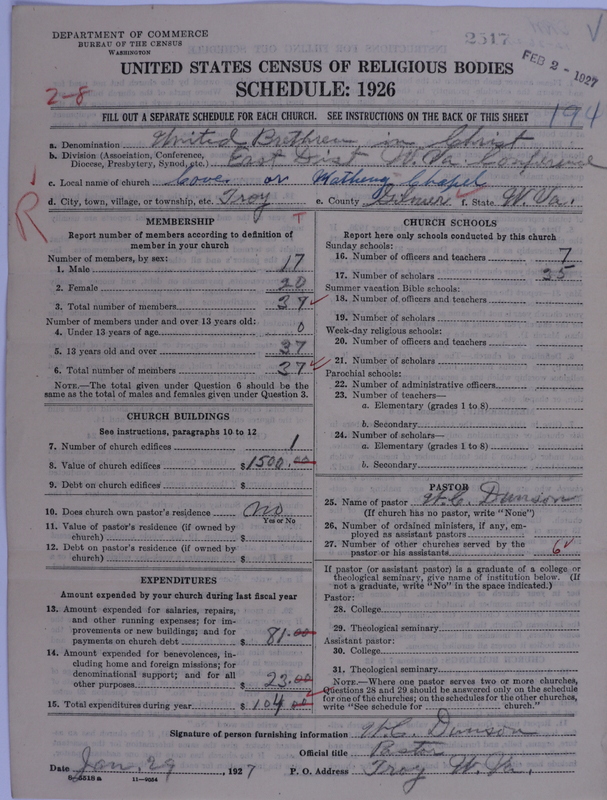 DEPARTMENT OF COMMERCE
BUREAU OF THE CENSUS
WASHINGTON
2517
FEB 2 - 1927
UNITED STATES CENSUS OF RELIGIOUS BODIES
2-8
SCHEDULE: 1926
FILL OUT A SEPARATE SCHEDULE FOR EACH CHURCH. SEE INSTRUCTIONS ON THE BACK OF THIS SHEET
194
a. Denomination United Brethren in Christ
b. Division (Association, Conference, Diocese, Presbytery, Synod, etc.) East Dist W. Va. Conference
c. Local name of church Cove or Mathena Chapel
d. City, town, village, or township, etc. Troy e. County Gilmer f. State W. Va.
R
MEMBERSHIP
Report number of members according to definition of
member in your church
Number of members, by sex:
1. Male 17
2. Female 20
3. Total number of members 37
Number of members under and over 13 years old:
4. Under 13 years of age 0
5. 13 years old and over 37
6. Total number of members 37
NOTE.—The total given under Question 6 should be the
same as the total of males and females given under Question 3.
CHURCH BUILDINGS
See instructions, paragraphs 10 to 12
7. Number of church edifices 1
8. Value of church edifices $1500.00
9. Debt on church edifices $
10. Does church own pastor's residence No
Yes or No
11. Value of pastor's residence (if owned by
church) $
12. Debt on pastor's residence (if owned by
church) $
EXPENDITURES
Amount expended by your church during last fiscal year
13. Amount expended for salaries, repairs,
and other running expenses; for im-
provements or new buildings; and for
payments on church debt $ 81.00
14. Amount expended for benevolences, in-
cluding home and foreign missions; for
denominational support; and for all
other purposes $ 23.00
15. Total expenditures during year $ 104.00
CHURCH SCHOOLS
Report here only schools conducted by this church
Sunday schools:
16. Number of officers and teachers 7
17. Number of scholars 35
Summer vacation Bible schools:
18. Number of officers and teachers
19. Number of scholars
Week-day religious schools:
20. Number of officers and teachers
21. Number of scholars
Parochial schools:
22. Number of administrative officers
23. Number of teachers—
a. Elementary (grades 1 to 8)
b. Secondary
24. Number of scholars—
a. Elementary (grades 1 to 8)
b. Secondary
PASTOR
25. Name of pastor W. C. Dunson
(If church has no pastor, write "None")
26. Number of ordained ministers, if any, em-
ployed as assistant pastors
27. Number of other churches served by the
pastor or his assistants 6
If pastor (or assistant pastor) is a graduate of a college or
theological seminary, give name of institution below. (If
not a graduate, write "No" in the space indicated.)
Pastor:
28. College
29. Theological seminary
Assistant pastor:
30. College
31. Theological seminary
NOTE.—Where one pastor serves two or more churches,
Questions 28 and 29 should be answered only on the schedule
for one of the churches; on the schedules for the other churches,
write "See schedule for church."
Signature of person furnishing information W. C. Dunson
Official title Pastor
Date Jan. 29, 1927 P. O. Address Troy W. Va.
8-5518a 11-9054